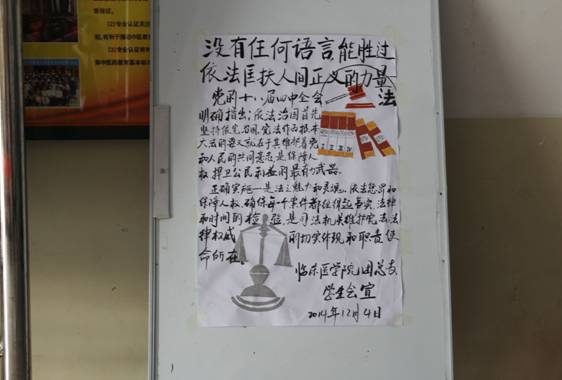 (2)专业认证关
没有任何语言能胜过
依法匡扶人间正义的力量
法
党的十八届四中全会
明确指出：依法治国首先
坚持依宪治国，宪法作为根本
大法的要义就在于其维护着党
和人民的共同意志是保障人
权捍卫公民利益的最有力武器。
正确实施—是法之魅力和灵魂。依法惩罪和
保障人权，确保每个案件都经得起事实、法律
和时间的检验，是司法机关维护宪法法
律权威的切实体现和职责使
命所在。
临床医学院团总支
学生会宣
2014年12月4日